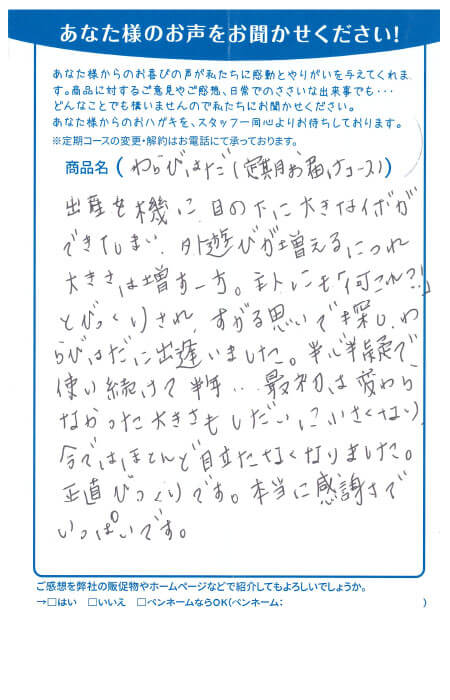 あなた様のお声をお聞かせください!
あなた様からのお喜びの声が私たちに感動とやりがいを与えてくれま
す。商品に対するご意見やご感想、日常でのささいな出来事でも・・・
どんなことでも構いませんので私たちにお聞かせください。
あなた様からのおハガキを、スタッフ一同心よりお待ちしております。
※定期コースの変更・解約はお電話にて承っております。
商品名(わらびはだ(定期お届けコース))
出産を機に、目の下に大きなイボが
できてしまい、外遊びが増えるにつれ
大きさは増す一方。主人にも「何これ?!」
とびっくりされ、すがる思いで探し、わ
らびはだに出逢いました。半心半疑で
使い続けて半年‥最初は変わら
なかった大きさもしだいに小さくなり、
今ではほとんど目立たなくなりました。
正直びっくりです。本当に感謝で
いっぱいです。
ご感想を弊社の販促物やホームページなどで紹介してもよろしいでしょうか。
→□はい □いいえ □ペンネームならOK(ペンネーム: )